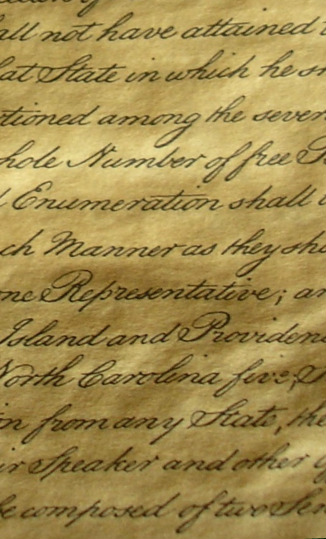 all not have attained
at State in which he s
tioned among the seve
hole Number of free
Enumeration shall
ch Manner as they sh
ne Representative; a
Island and Providen
North Carolina five,
n from any State, the
r Speaker and other
e composed of two Sen